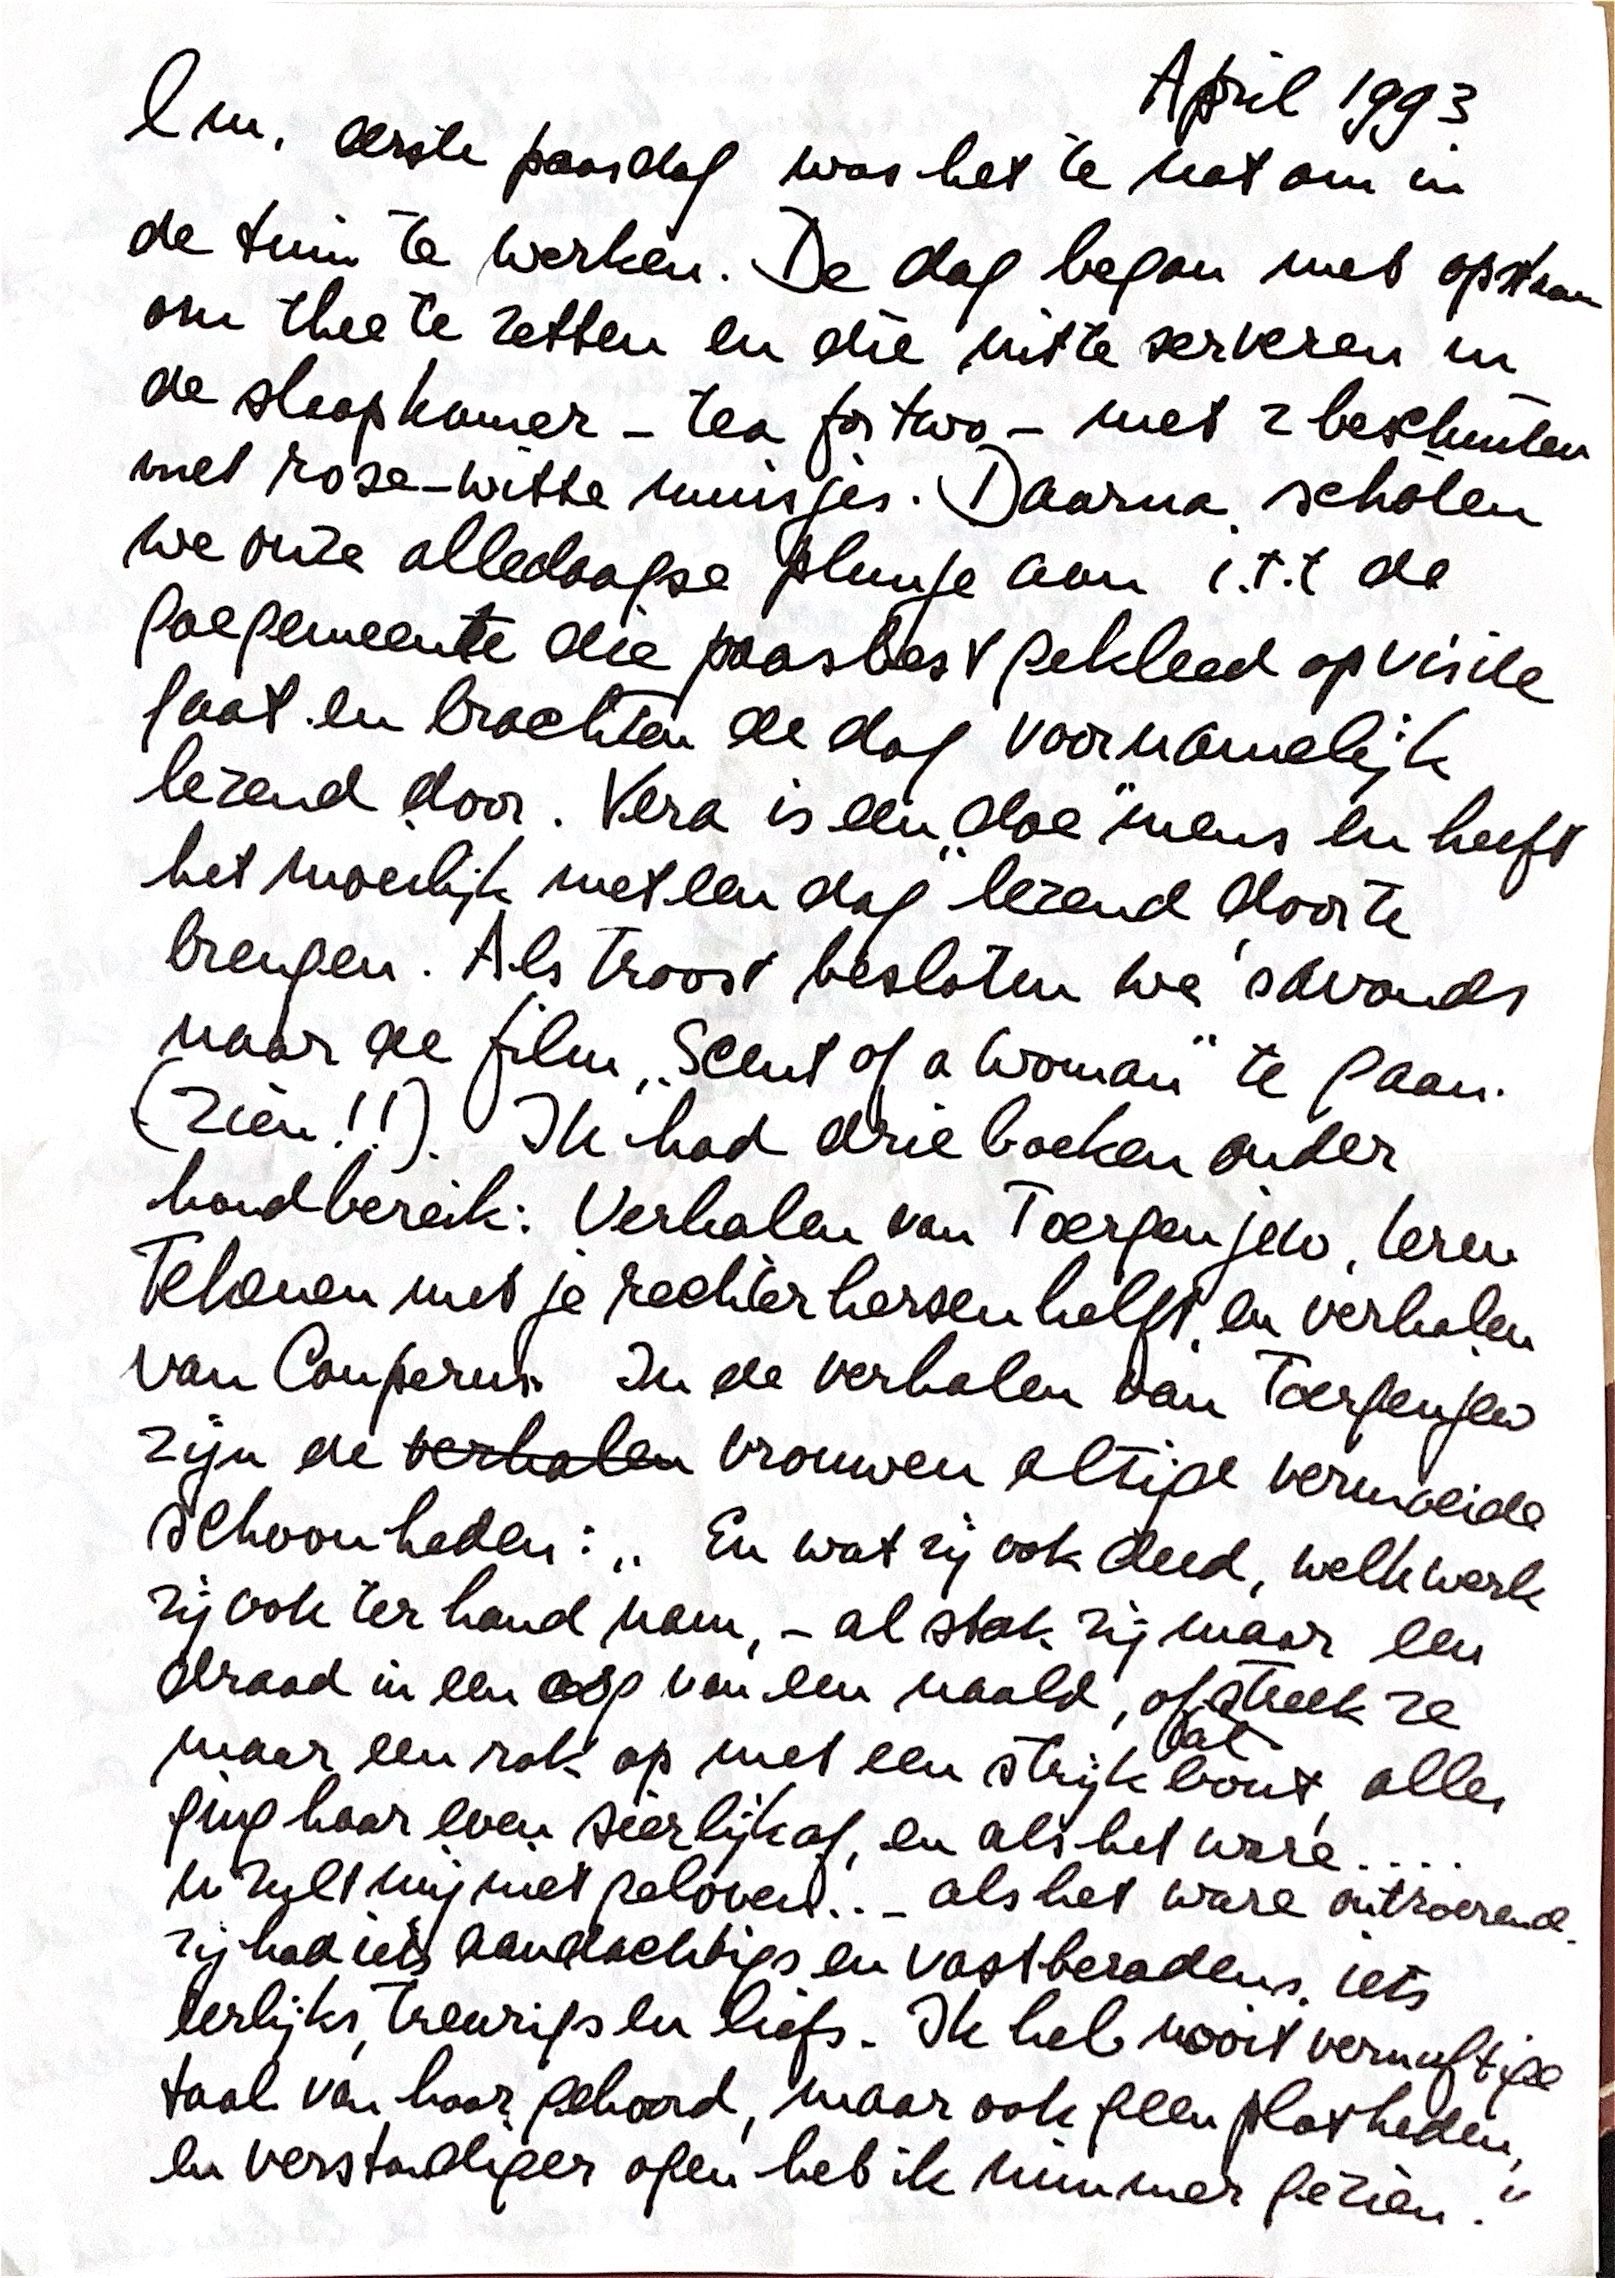 April 1993
L m, eerste paasdag was het te nat om in
de tuin te werken. De dag began met opstaan
om thee te zetten en die uit te serveren in
de slaapkamer – tea for two – met 2 beschuiten
met rose-witte muisjes. Daarna schoten
we onze alledaagse plunje aan i.t.t de
goegemeente die paasbest gekleed op visite
gaat en brachten de dag voornamelijk
lezend door. Vera is een „doe" mens en heeft
het moeilijk met een dag "lezend door te
brengen. Als troost besloten we 's avonds
naar de film „Scent of a Woman" te gaan.
(zien!!). Ik had drie boeken onder
handbereik: Verhalen van Toergenjew, leren
Tekenen met je rechter hersenhelft, en verhalen
van Couperus. In de verhalen van Toergenjew
zijn de verhalen vrouwen altijd vermoeide
schoonheden: „ En wat zij ook deed, welk werk
zij ook ter hand nam, – al stak zij maar een
draad in een oog van een naald, of streek ze
maar een rok op met een strijkbout, alles
ging haar even sierlijk af, en als het ware....
u zult mij niet geloven... – als het ware ontroerend.
zij had iets aandachtigs en vastberadens, iets
eerlijks, treurigs en liefs. Ik heb nooit vernuftige
taal van haar gehoord, maar ook geen platheden,
en verstandiger ogen heb ik nimmer gezien."